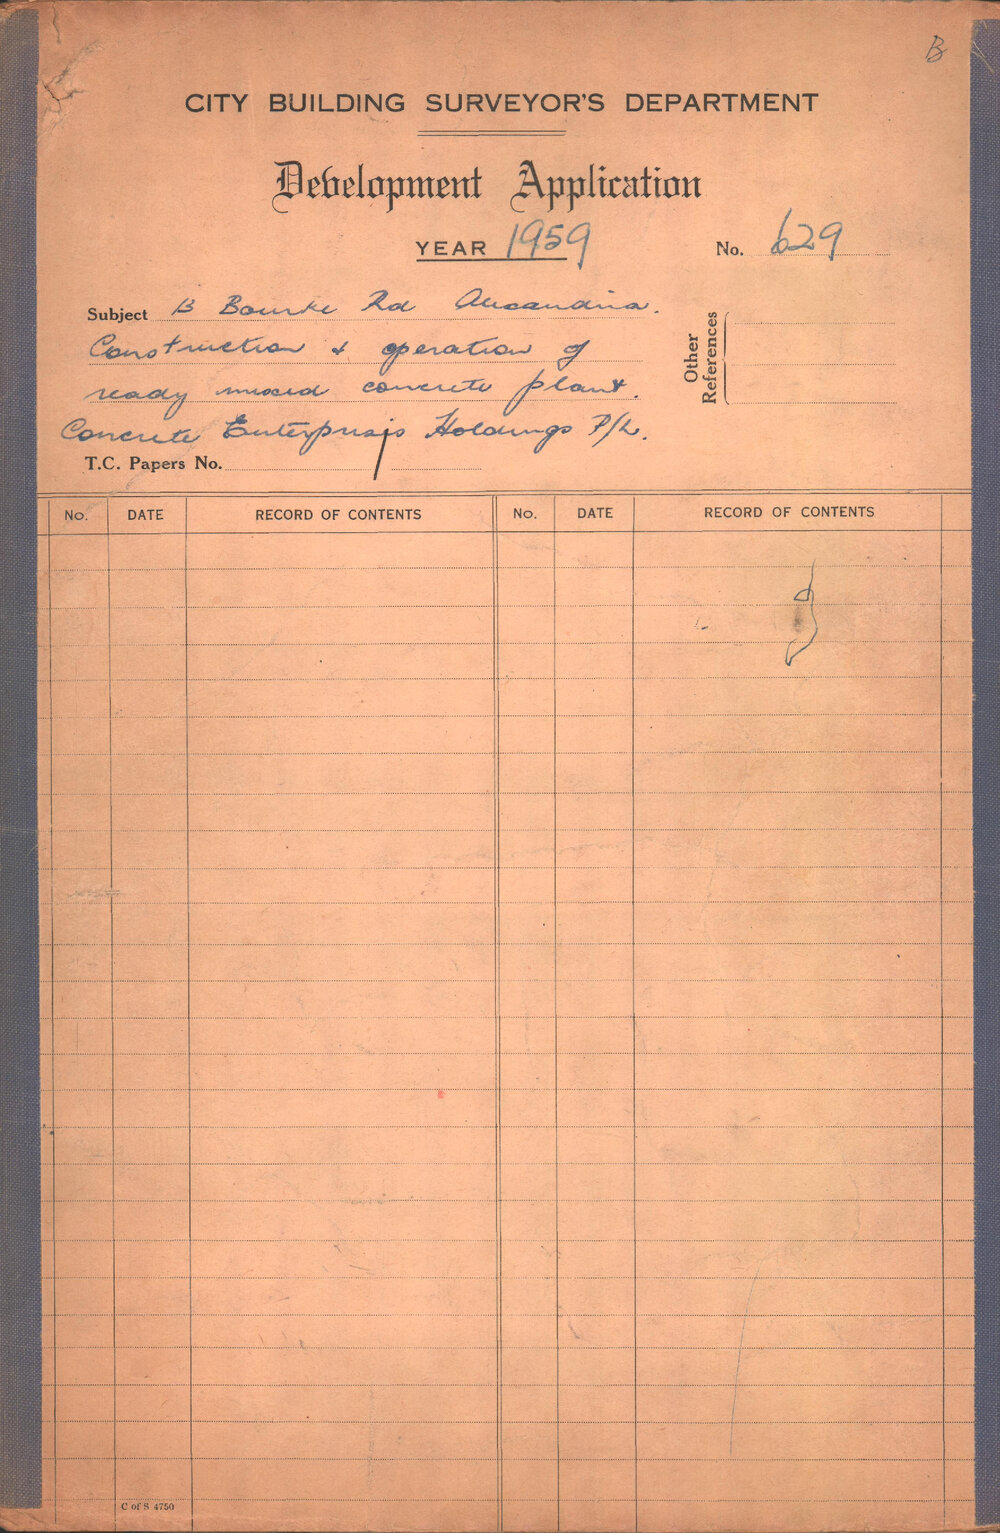 B
CITY BUILDING SURVEYOR'S DEPARTMENT
Development Application
YEAR 1959 No. 629
Subject B Bourke Rd Alexandria.
Construction & operation of
ready mixed concrete plant.
Concrete Enterprises Holdings P/L.
Other References
T.C. Papers No.
No. DATE RECORD OF CONTENTS No. DATE RECORD OF CONTENTS
C of S 4750